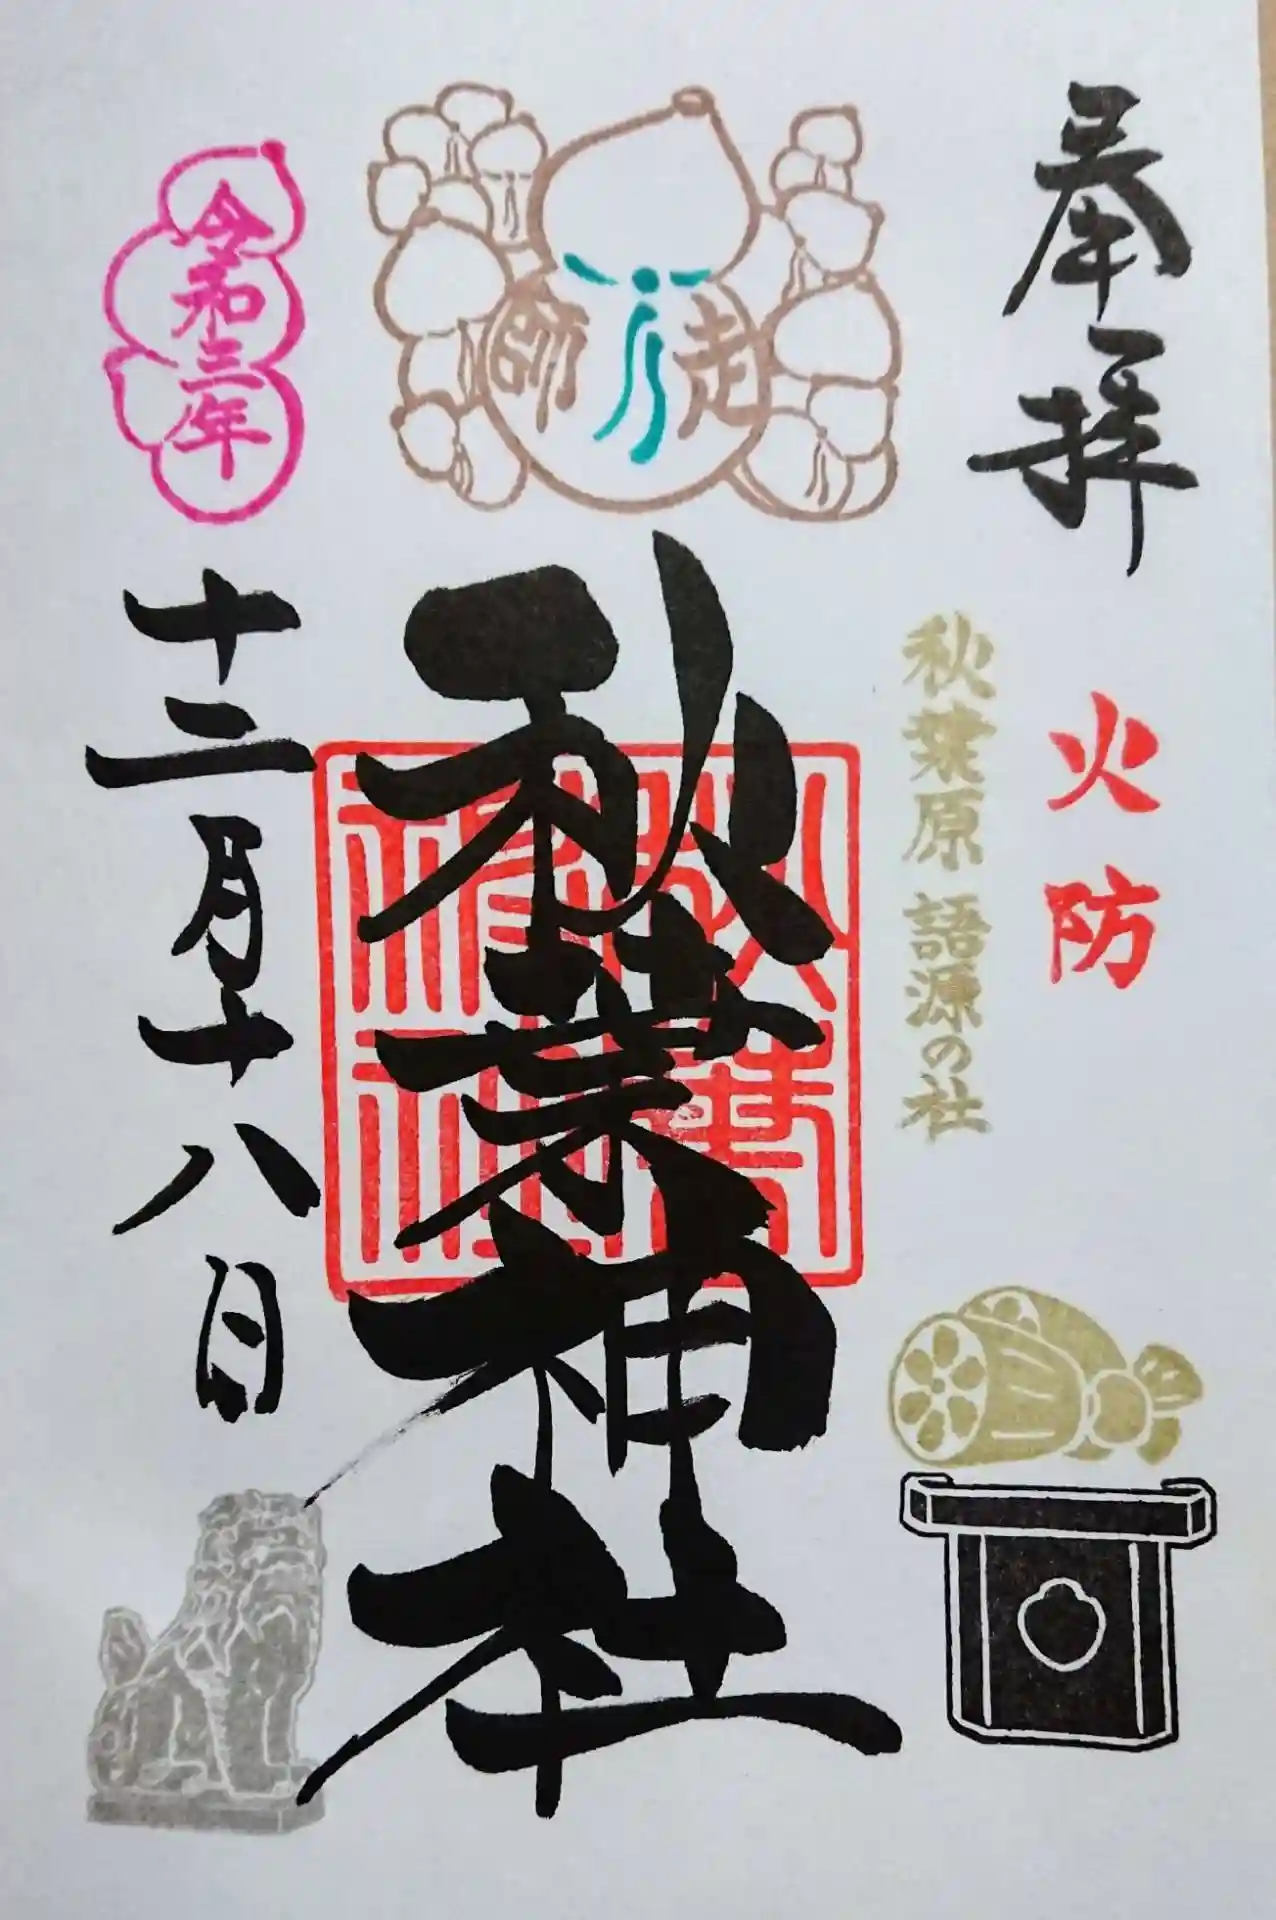 奉拝
火防
秋葉原 語源の社
師走
秋葉神社
秋葉神社
令和三年
十二月十八日